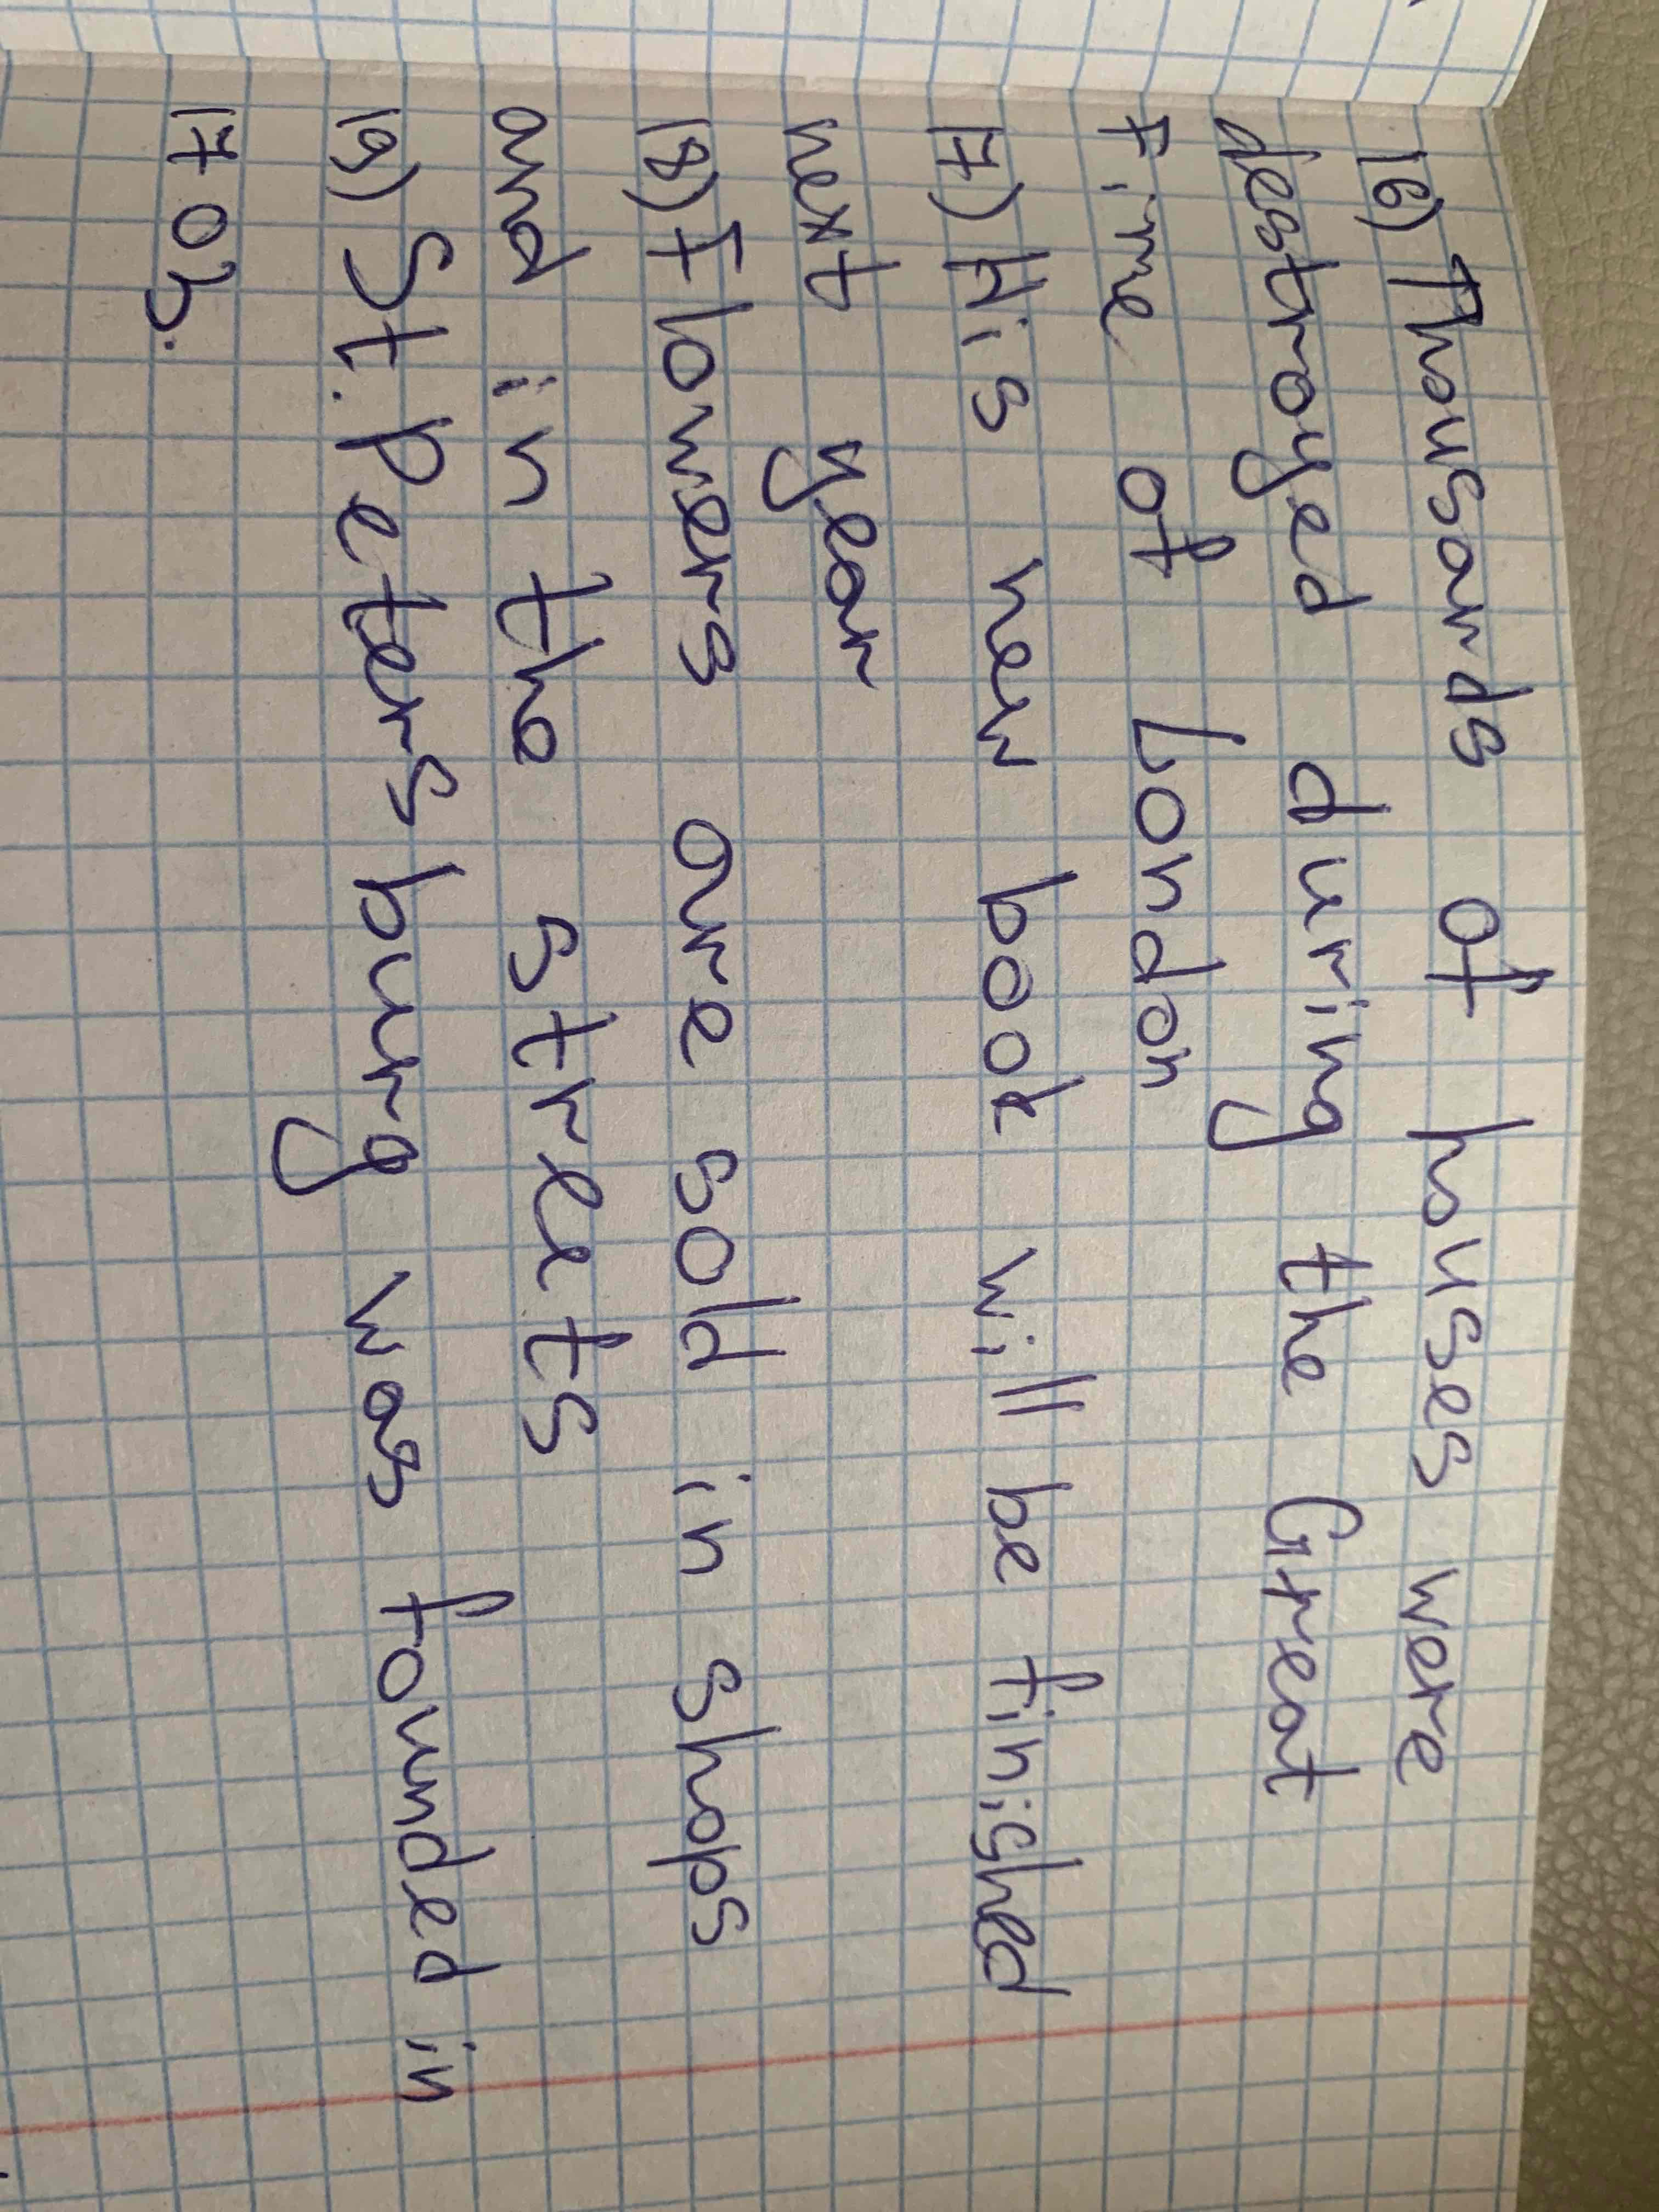 16) Thousands of houses were
destroyed during the Great
Fime of London
17) His new book will be finished
next year
18) Flowers are sold in shops
and in the streets
19) St. Petersburg was founded in
1703.